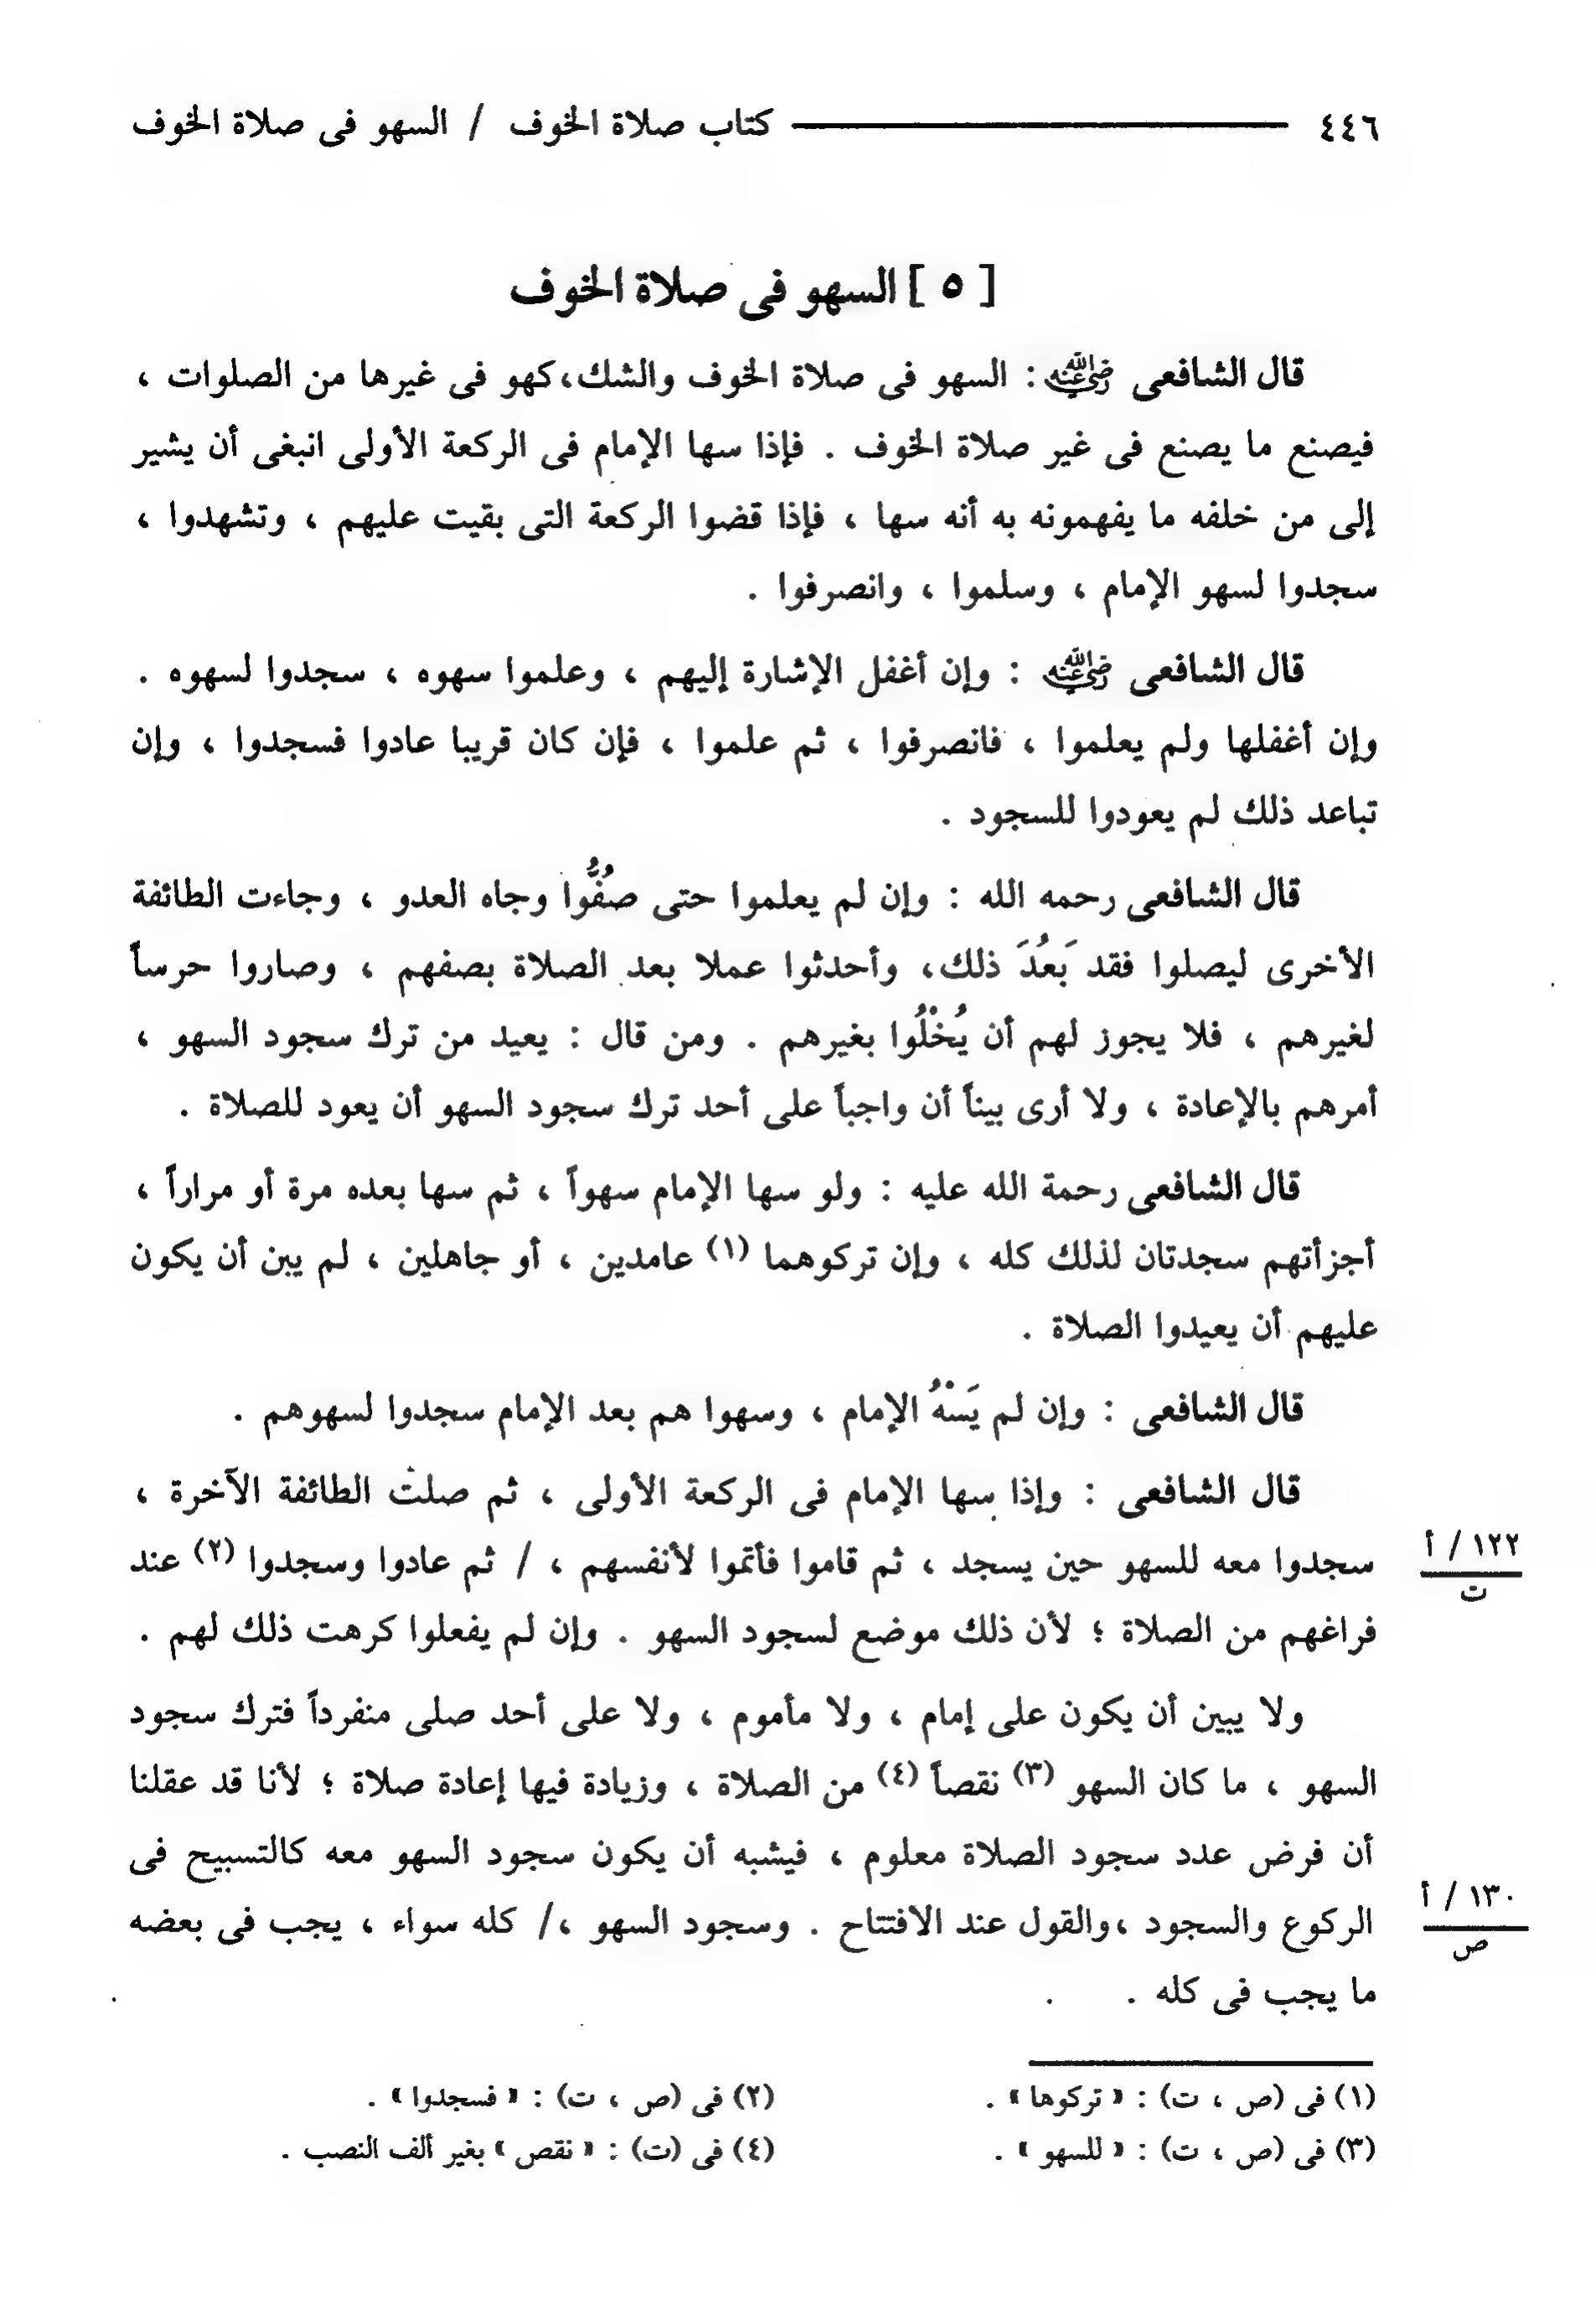 ٤٤٦ كتاب صلاة الخوف / السهو فى صلاة الخوف
[ ٥ ] السهو فى صلاة الخوف
قال الشافعى رضي الله عنه : السهو فى صلاة الخوف والشك،كهو فى غيرها من الصلوات ،
فيصنع ما يصنع فى غير صلاة الخوف . فإذا سها الإمام فى الركعة الأولى انبغى أن يشير
إلى من خلفه ما يفهمونه به أنه سها ، فإذا قضوا الركعة التى بقيت عليهم ، وتشهدوا ،
سجدوا لسهو الإمام ، وسلموا ، وانصرفوا .
قال الشافعى رضي الله عنه : وإن أغفل الإشارة إليهم ، وعلموا سهوه ، سجدوا لسهوه .
وإن أغفلها ولم يعلموا ، فانصرفوا ، ثم علموا ، فإن كان قريبا عادوا فسجدوا ، وإن
تباعد ذلك لم يعودوا للسجود .
قال الشافعى رحمه الله : وإن لم يعلموا حتى صُفُّوا وجاه العدو ، وجاءت الطائفة
الأخرى ليصلوا فقد بَعُدَ ذلك، وأحدثوا عملا بعد الصلاة بصفهم ، وصاروا حرساً
لغيرهم ، فلا يجوز لهم أن يُخْلُوا بغيرهم . ومن قال : يعيد من ترك سجود السهو ،
أمرهم بالإعادة ، ولا أرى بيناً أن واجباً على أحد ترك سجود السهو أن يعود للصلاة .
قال الشافعى رحمة الله عليه : ولو سها الإمام سهواً ، ثم سها بعده مرة أو مراراً ،
أجزأتهم سجدتان لذلك كله ، وإن تركوهما (١) عامدين ، أو جاهلين ، لم يبن أن يكون
عليهم أن يعيدوا الصلاة .
قال الشافعى : وإن لم يَسْهُ الإمام ، وسهوا هم بعد الإمام سجدوا لسهوهم .
قال الشافعى : وإذا سها الإمام فى الركعة الأولى ، ثم صلت الطائفة الآخرة ،
سجدوا معه للسهو حين يسجد ، ثم قاموا فأتموا لأنفسهم ، / ثم عادوا وسجدوا (٢) عند
١٢٢ / أ
ت
فراغهم من الصلاة ؛ لأن ذلك موضع لسجود السهو . وإن لم يفعلوا كرهت ذلك لهم .
ولا يبين أن يكون على إمام ، ولا مأموم ، ولا على أحد صلى منفرداً فترك سجود
السهو ، ما كان السهو (٣) نقصاً (٤) من الصلاة ، وزيادة فيها إعادة صلاة ؛ لأنا قد عقلنا
أن فرض عدد سجود الصلاة معلوم ، فيشبه أن يكون سجود السهو معه كالتسبيح فى
الركوع والسجود ،والقول عند الافتتاح . وسجود السهو ،/ كله سواء ، يجب فى بعضه
١٣٠ / أ
ص
ما يجب فى كله .
(١) فى (ص ، ت) : « تركوها » .
(٢) فى (ص ، ت) : « فسجدوا » .
(٣) فى (ص ، ت) : « للسهو » .
(٤) فى (ت) : « نقص » بغير ألف النصب .